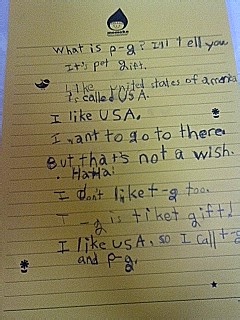 What is p-g? I'll tell you
It's pet gift.
I like United states of ameria
It's called USA.
I like USA.
I want to go to there
But that's not a wish.
Haha!
I don't like t-g too.
T-g is tiket gift!
I like USA, so I call t-g
and p-g.